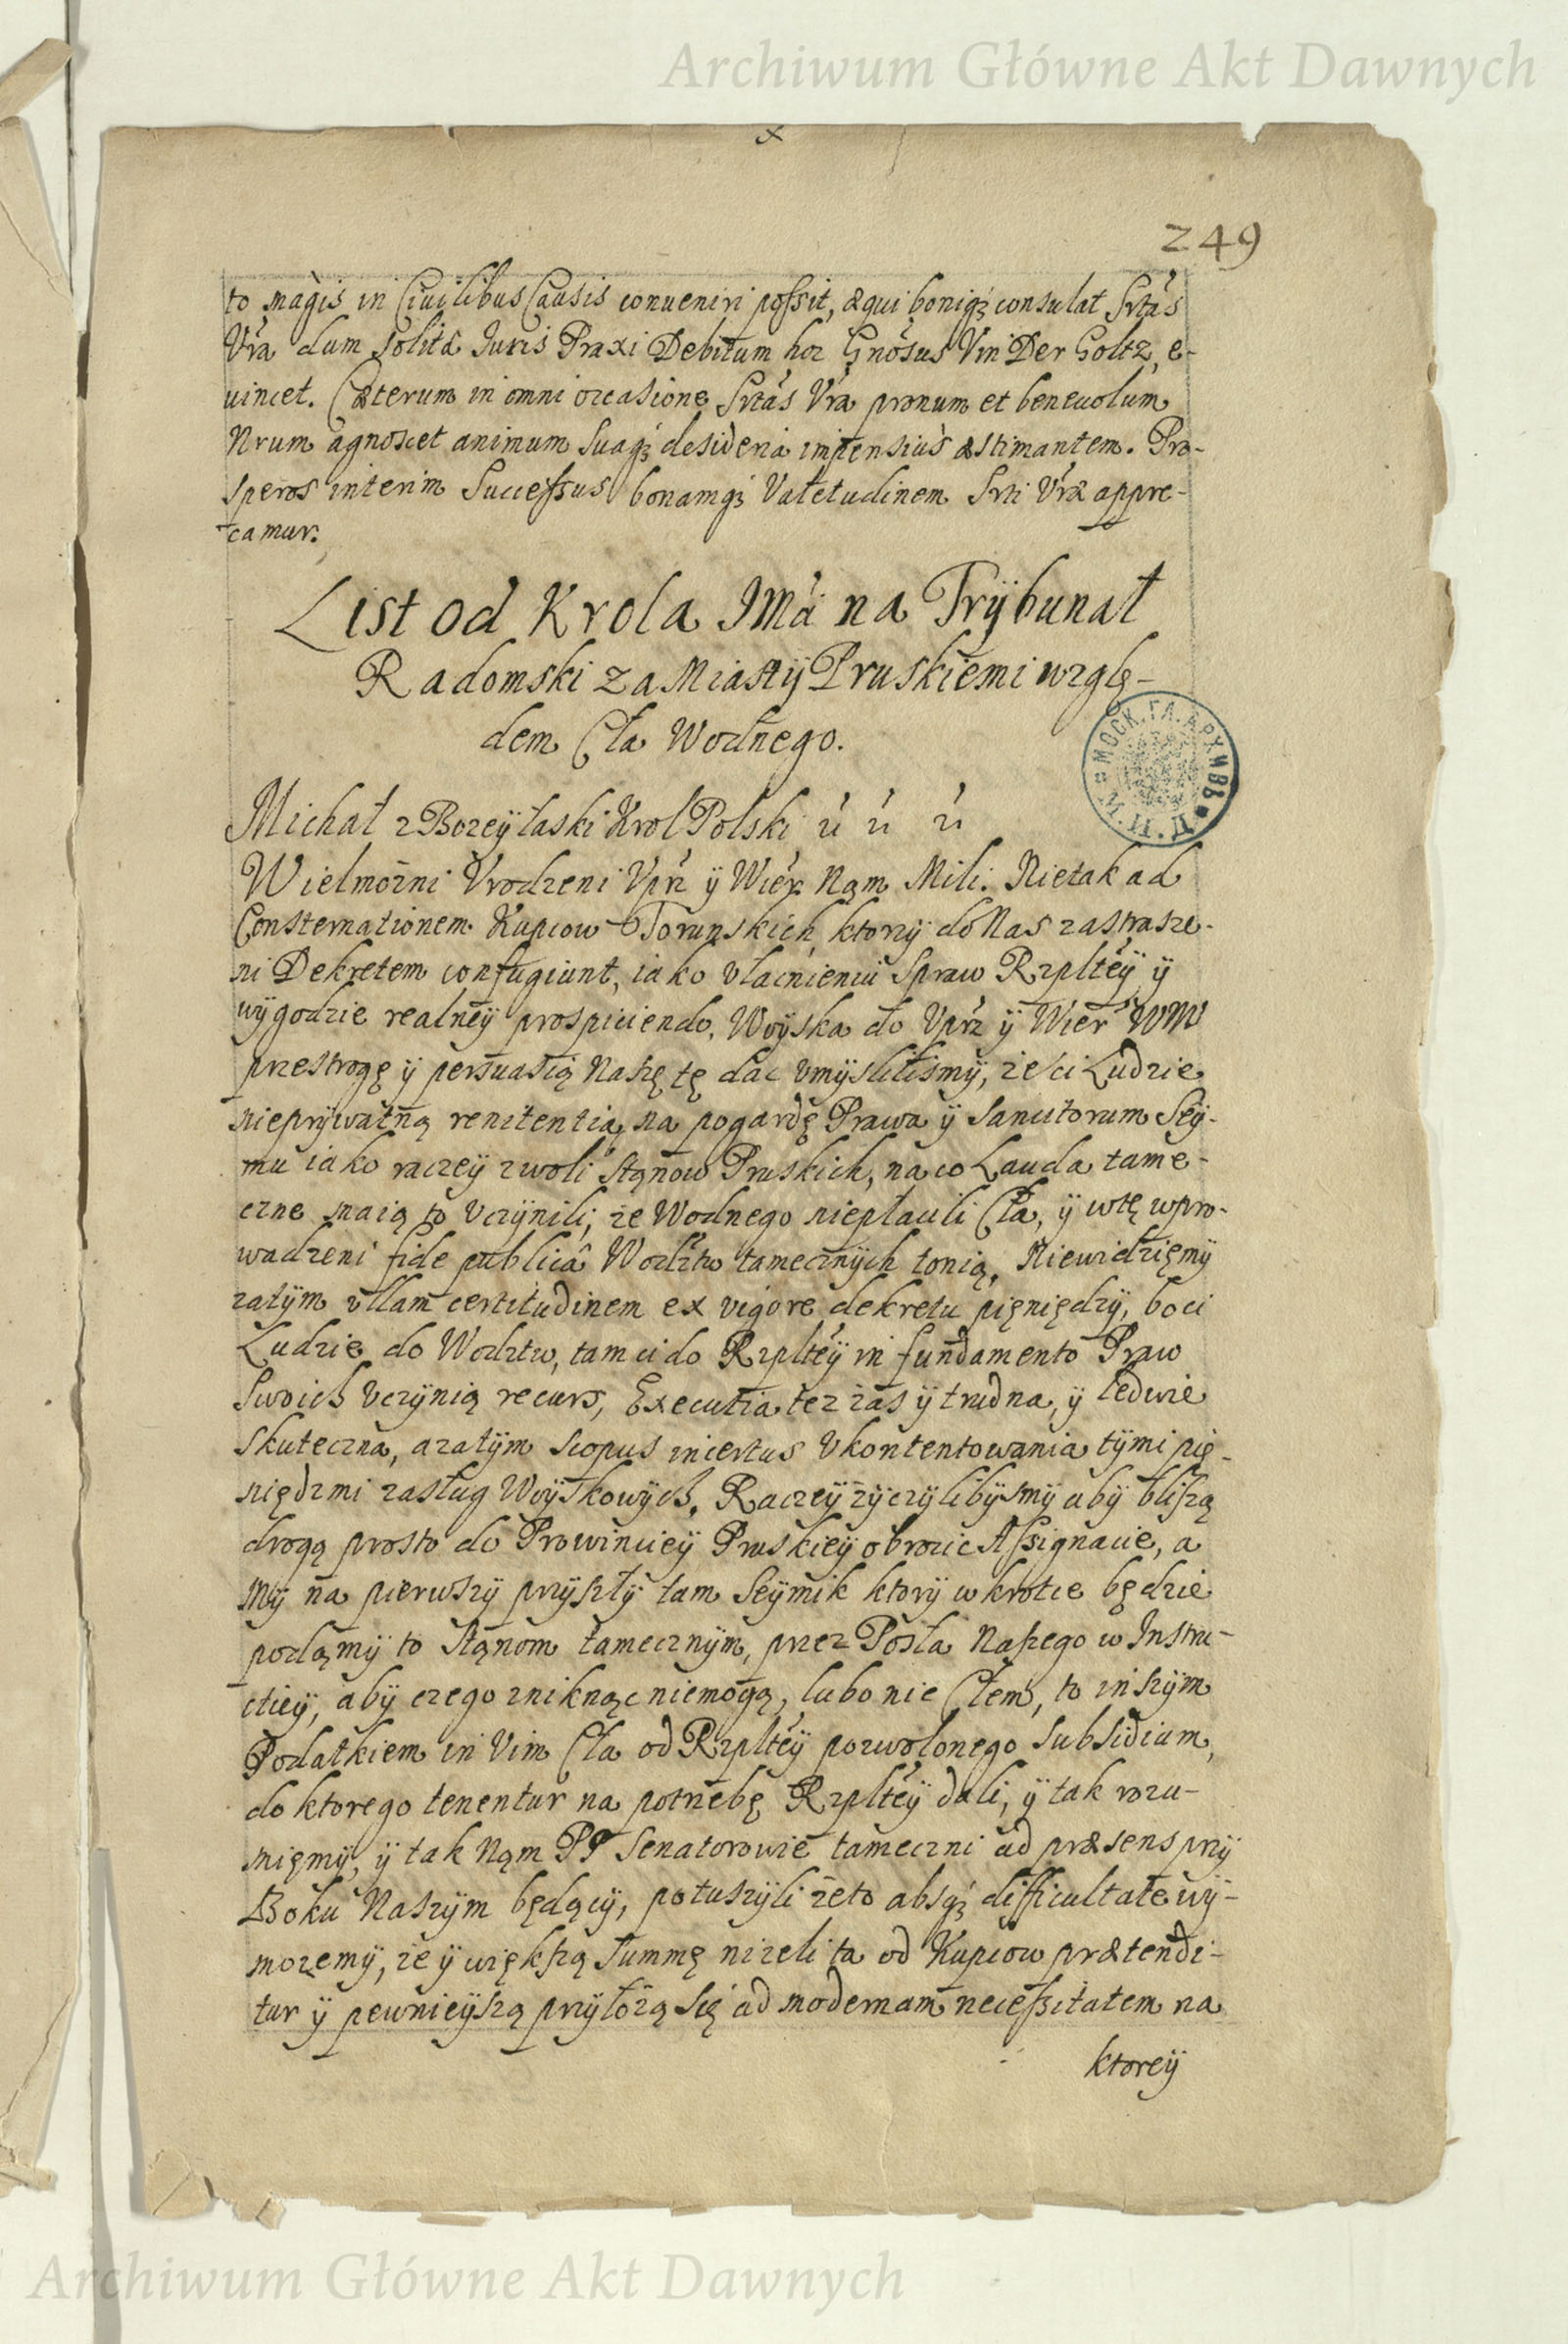 Archiwum Główne Akt Dawnych
249
to magis in Civilibus Causis conveniri possit, æqui boniqȝ consulat Srtás
Vrá dum solitâ Juris Praxi Debitum hoc Gnősus Vin Der Goltz, e-
vincet. Cæterum in omni occasione Srtás Vrá pronum et benevolum
Nrum agnoscet animum suaqȝ desideria impensius æstimantem. Pro-
speros interim Successus bonamqȝ Valetudinem Srti Vræ appre-
camur.
List od Krola JMá na Trÿbunał
Radomski za Miastÿ Pruskiemi wzglę-
dem Cła Wodnego.
Michał z Bozeÿ łaski Krol Polski ú ú ú
Wielmożni Vrodzeni Vprź ÿ Wierź Nąm Mili. Nietak ad
Consternationem Kupcow Torunskich, ktorzÿ do Nas zastrasze-
ni Dekretem confugiunt, iako vłacnieniu spraw Rzpltéÿ ÿ
wÿgodzie realneÿ prospiciendo, Woÿska do Vprź ÿ Wier WW
przestrogę ÿ persuasią Naszę tę dac vmÿslilismÿ, że ci Ludzie
nieprÿwatną renitentią, na pogardę Prawa ÿ sancitorum Seÿ-
mu iako raczeÿ zwoli Stąnow Pruskich, na co Lauda tame-
czne maią to vczÿnili, że Wodnego niepłacili Cła, ÿ wtę wpro-
wadzeni fide publicâ Wodztw tamecznÿch tonią. Niewidzięmÿ
zatÿm vllam certitudinem ex vigore dekretu pięniędzÿ, bo ci
Ludzie do Wodztw, tam ci do Rzpltéÿ in fundamento Praw
swoich vczÿnią recurs, Executia tez zas ÿ trudna, ÿ ledwie
skuteczna, azatÿm scopus incertus vkontentowania tÿmi pię-
niędzmi zasług Woÿskowÿch. Raczeÿ zÿczÿlibÿsmÿ abÿ bliszą
drogą prosto do Prowincieÿ Pruskieÿ obrocic Assignacie, a
Mÿ na pierwszÿ przÿszłÿ tam Seÿmik ktorÿ w krotce będzie
podąmÿ to Stąnom tamecznÿm, przez Posła Naszego w Instru-
ctieÿ, abÿ czego zniknąc niemogą, lubo nie Cłem, to inszÿm
Podatkiem in Vim Cła od Rzpltéÿ pozwolonego subsidium,
do ktorego tenentur na potrzebę Rzpltéÿ dali, ÿ tak rozu-
mięmÿ, ÿ tak Nąm PP Senatorowie tameczni ad præsens przÿ
Boku Naszÿm będącÿ, potuszÿli żeto absqȝ difficultate wÿ-
możemÿ, że ÿ większą summę nizeli ta od Kupcow prætendi-
tur ÿ pewnieÿszą przÿłożą się ad modernam necessitatem na
ktoreÿ
МОСК. ГЛ. АРХИВЪ
Archiwum Główne Akt Dawnych